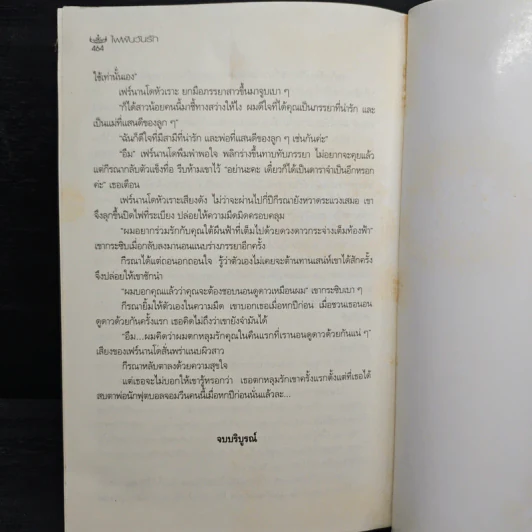 ไฟฝันวันรัก
464
ใช้เท่านั้นเอง"
เฟร์นานโดหัวเราะ ยกมือภรรยาสาวขึ้นมาจูบเบา ๆ
"ก็ได้สาวน้อยคนนี้มาชี้ทางสว่างให้ไง ผมดีใจที่ได้คุณเป็นภรรยาที่น่ารัก และ
เป็นแม่ที่แสนดีของลูก ๆ"
"ฉันก็ดีใจที่มีสามีที่น่ารัก และพ่อที่แสนดีของลูก ๆ เช่นกันค่ะ"
"อืม" เฟร์นานโดพึมพำพอใจ พลิกร่างขึ้นทาบทับภรรยา ไม่อยากจะคุยแล้ว
แต่กีรณากลับตัวแข็งทื่อ รีบห้ามเขาไว้ "อย่านะคะ เดี๋ยวก็ได้เป็นดาราจำเป็นอีกหรอก
ค่ะ" เธอเตือน
เฟร์นานโดหัวเราะเสียงดัง ไม่ว่าจะผ่านไปกี่ปีกีรณายังหวาดระแวงเสมอ เขา
จึงลุกขึ้นปิดไฟที่ระเบียง ปล่อยให้ความมืดมิดครอบคลุม
"ผมอยากร่วมรักกับคุณใต้ผืนฟ้าที่เต็มไปด้วยดวงดาวกระจ่างเต็มท้องฟ้า"
เขากระซิบเมื่อกลับลงมานอนแนบร่างภรรยาอีกครั้ง
กีรณาได้แต่ถอนอกถอนใจ รู้ว่าตัวเองไม่เคยจะต้านทานเสน่ห์เขาได้สักครั้ง
จึงปล่อยให้เขาชักนำ
"ผมบอกคุณแล้วว่าคุณจะต้องชอบนอนดูดาวเหมือนผม" เขากระซิบเบา ๆ
กีรณายิ้มให้ตัวเองในความมืด เขาบอกเธอเมื่อหกปีก่อน เมื่อชวนเธอนอน
ดูดาวด้วยกันครั้งแรก เธอคิดไม่ถึงว่าเขายังจำมันได้
"อืม...ผมคิดว่าผมตกหลุมรักคุณในคืนแรกที่เรานอนดูดาวด้วยกันแน่ ๆ"
เสียงของเฟร์นานโดสั่นพร่าแนบผิวสาว
กีรณาหลับตาลงด้วยความสุขใจ
แต่เธอจะไม่บอกให้เขารู้หรอกว่า เธอตกหลุมรักเขาครั้งแรกตั้งแต่ที่เธอได้
สบตาพ่อนักฟุตบอลจอมวีนคนนี้เมื่อหกปีก่อนนั่นแล้วละ...
จบบริบูรณ์